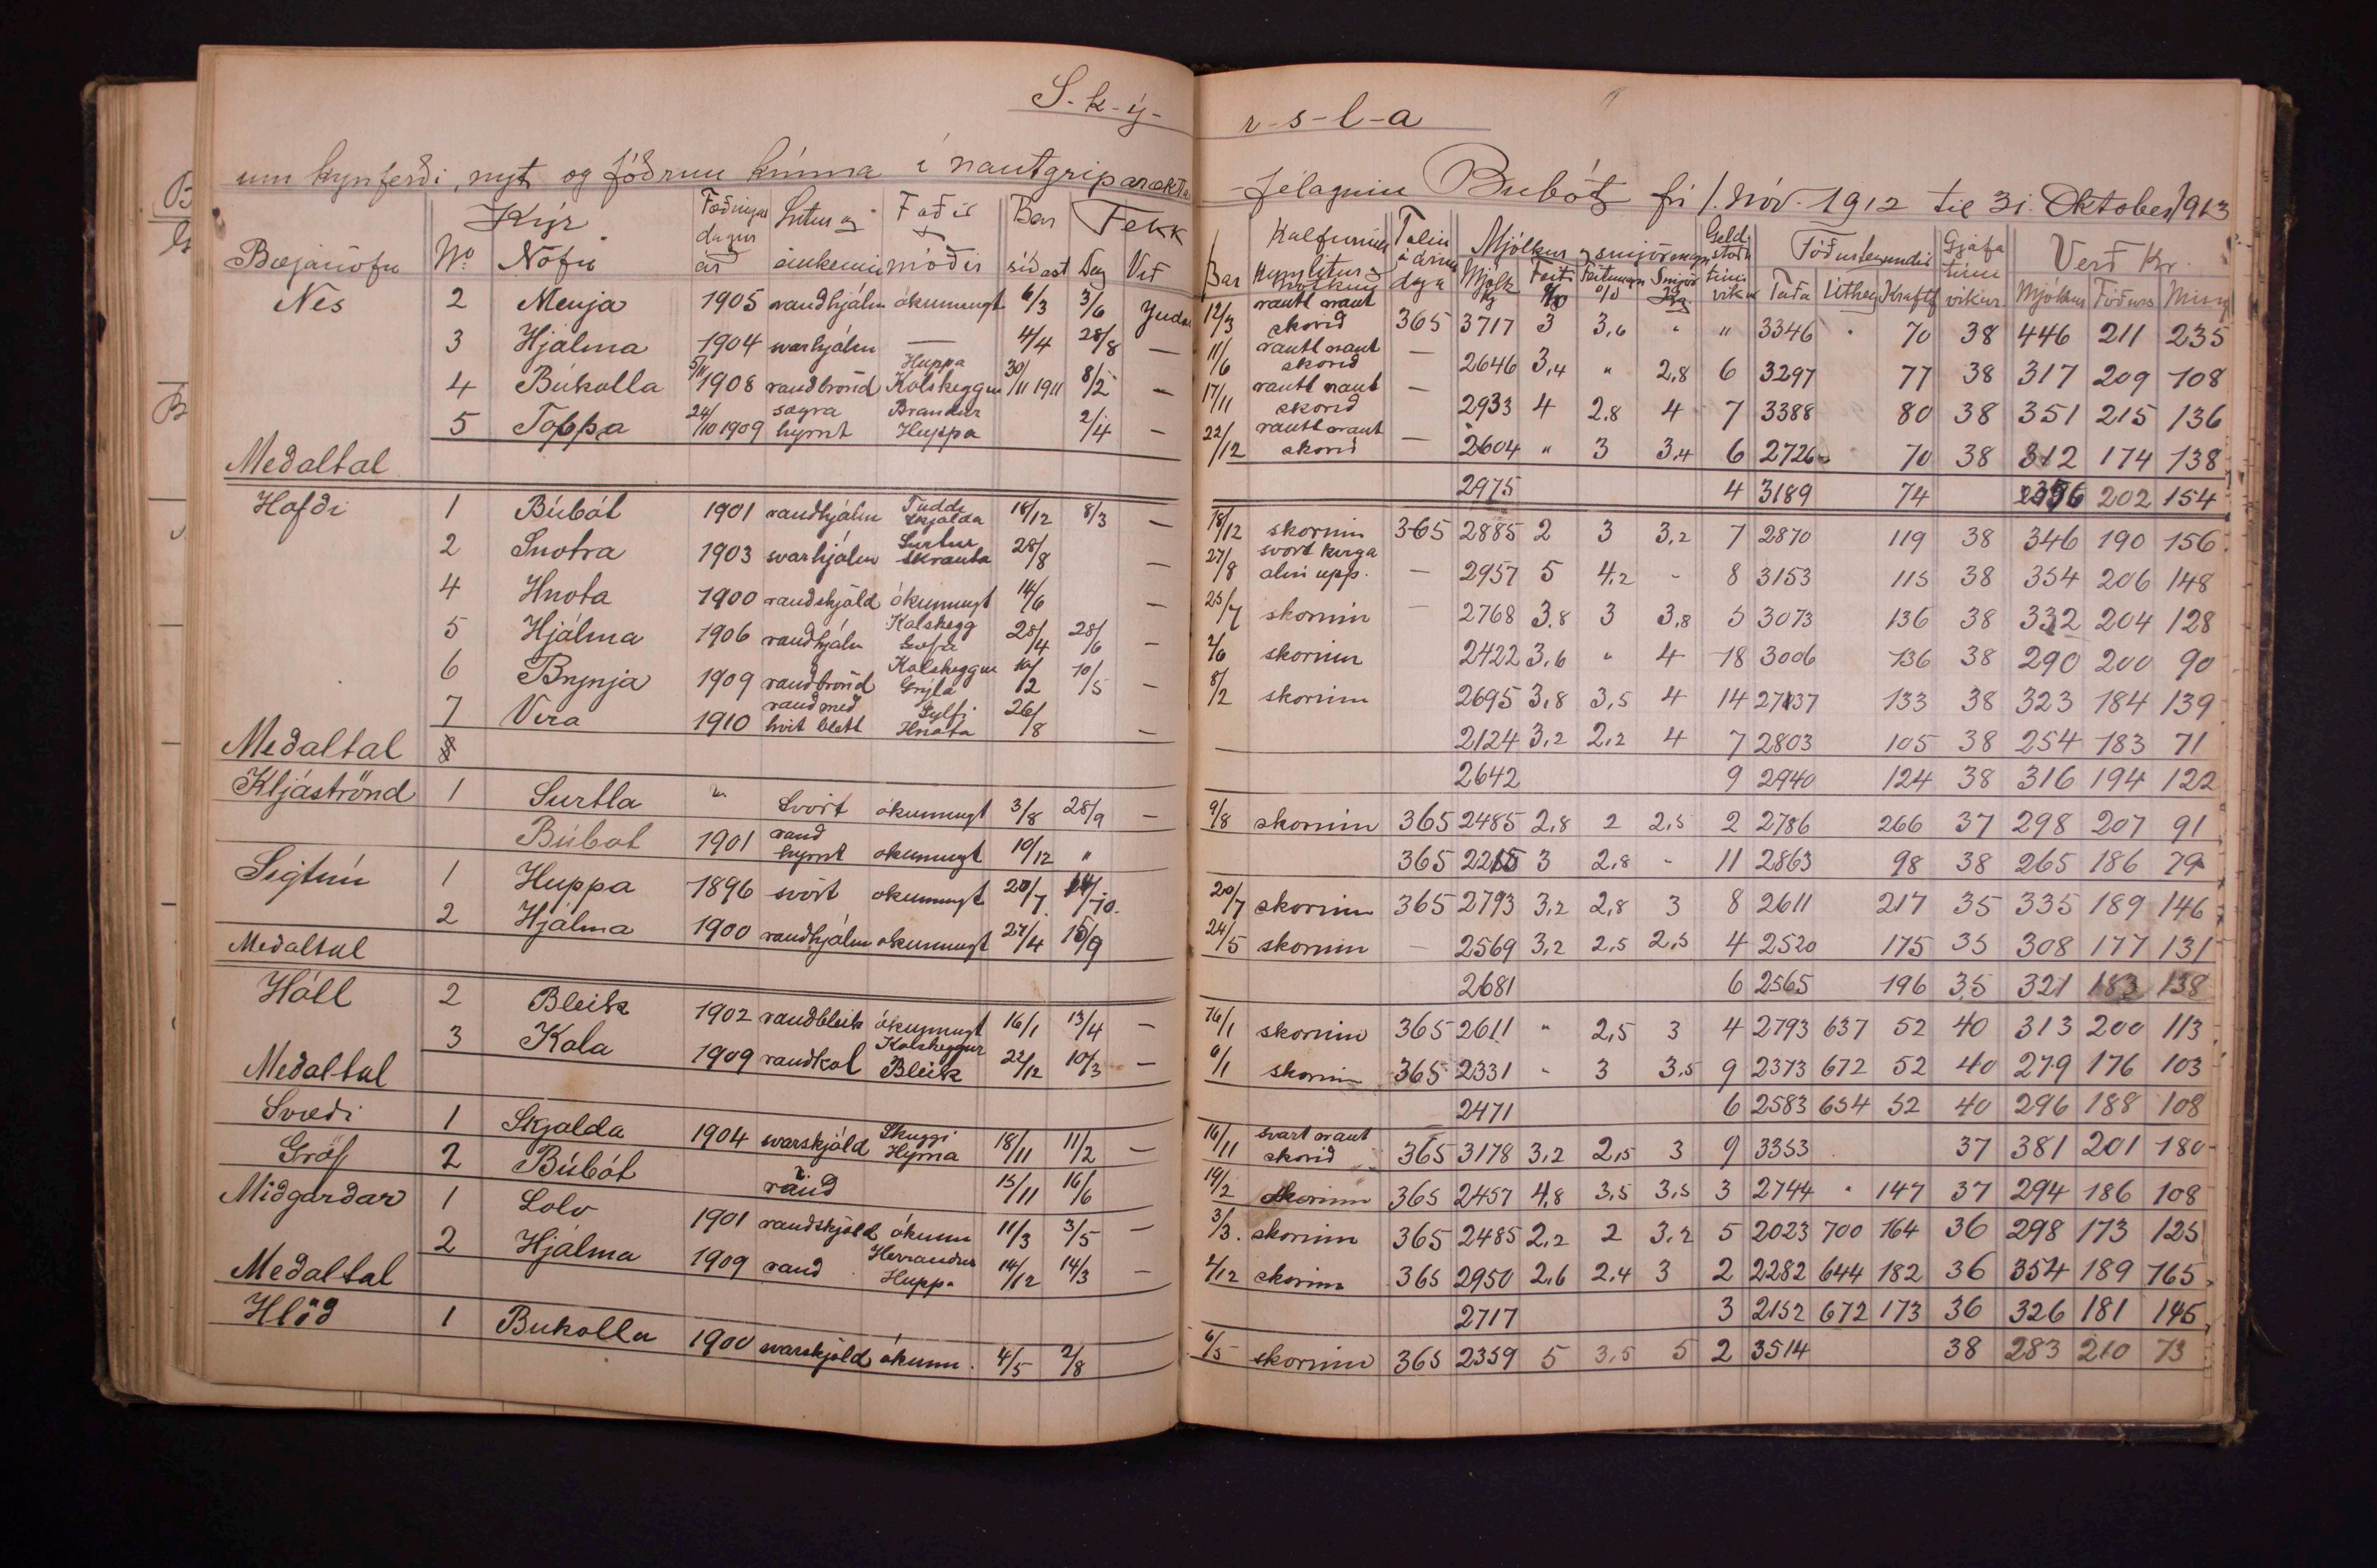 S-k-ý-
um kynferði, nyt og fóðrun kúnna í nautgriparækta
Bæjanöfn Kýr Nº Nöfn Fæðingar dagur ár Litur og einkenni Faðir móðir Bar síðast Fekk Dag Við
Nes 2 Menja 1905 raudhjálm ókunnugt 6/3 3/6
3 Hjálma 1904 svarhjálm — 4/4 28/8 —
4 Búkolla 5/11 1908 raudbrönd Huppa Kolskeggur 30/11 1911 8/2 —
5 Toppa 24/10 1909 sægra hyrnt Brandur Huppa 2/4 —
Medaltal
Hofdi 1 Búbót 1901 raudhjálm Tuddi Skjalda 18/12 8/3 —
2 Snotra 1903 svarhjálm Surtur Skrauta 28/8 —
4 Hnota 1900 raudskjöld ókunnugt 14/6 —
5 Hjálma 1906 raudhjálm Kolskegg 28/4 28/6 —
6 Brynja 1909 raudbrönd Kolskeggur Grýla 10/2 10/5 —
7 Vera 1910 raud med hvit blett Gylfi Hnota 26/8 —
Medaltal
Kljáströnd 1 Surtla " Svört ókunnugt 3/8 28/9 —
Búbot 1901 raud hyrnt ókunnugt 19/12 "
Sigtún 1 Huppa 1896 svört okunnugt 20/7 14/10
2 Hjálma 1900 raudhjálm okunnugt 27/4 15/9
Medaltal
Háll 2 Bleik 1902 raudbleik ókunnugt 16/1 13/4 —
3 Kola 1909 raudkol Kolskeggur Bleik 22/12 10/3 —
Medaltal
Svædi 1 Skjalda 1904 svarskjöld Skuggi Hyrna 18/11 11/2 —
Gröf 2 Búbót raud 15/11 16/6
Midgardar 1 Lolo 1901 raudskjöld ókunn 11/3 3/5 —
2 Hjálma 1909 raud Herraudur Huppa 14/12 14/3 —
Medaltal
Hlöd 1 Bukolla 1900 svarskjöld ókunn. 4/5 2/8
r-s-l-a
félaginu Bubót frá 1. Nóv. 1912 til 31. Oktober 1913
Bar Kalfurinn Talin daga Mjólkur og smjörmagn Mjólk kg Feiti Smjör Kg Geld vikur Tada Uthey Kraftf Gjafa tími vikur Verð Kr. Mjólkur Fóðurs Mism
12/3 rautt naut skorid 365 3717 3 3,6 " " 3346 " 70 38 446 211 235
11/6 rautt naut skorid — 2646 3,4 " 2,8 6 3297 77 38 317 209 108
17/11 rautt naut skorid — 2933 4 2,8 4 7 3388 80 38 351 215 136
22/12 rautt naut skorid — 2604 " 3 3,4 6 2726 70 38 312 174 138
2975 4 3189 74 356 202 154
18/12 skorinn 365 2885 2 3 3,2 7 2870 119 38 346 190 156
27/8 svort kviga alin upp. — 2957 5 4,2 - 8 3153 115 38 354 206 148
25/7 skorinn — 2768 3,8 3 3,8 5 3073 136 38 332 204 128
2/6 skorinn 2422 3,6 " 4 18 3006 136 38 290 200 90
8/2 skorinn 2695 3,8 3,5 4 14 2737 133 38 323 184 139
2124 3,2 2,2 4 7 2803 105 38 254 183 71
2642 9 2940 124 38 316 194 122
9/8 skorinn 365 2485 2,8 2 2,5 2 2786 266 37 298 207 91
365 2215 3 2,8 - 11 2863 98 38 265 186 79
20/7 skorinn 365 2793 3,2 2,8 3 8 2611 217 35 335 189 146
24/5 skorinn — 2569 3,2 2,5 2,5 4 2520 175 35 308 177 131
2681 6 2565 196 35 321 183 138
16/1 skorinn 365 2611 " 2,5 3 4 2793 637 52 40 313 200 113
6/1 skorinn 365 2331 - 3 3,5 9 2373 672 52 40 279 176 103
2471 6 2583 654 52 40 296 188 108
16/11 svart naut skorid 365 3178 3,2 2,5 3 9 3353 37 381 201 180
19/2 skorinn 365 2457 4,8 3,5 3,5 3 2744 " 147 37 294 186 108
3/3. skorinn 365 2485 2,2 2 3,2 5 2023 700 164 36 298 173 125
2/12 skorinn 365 2950 2,6 2,4 3 2 2282 644 182 36 354 189 165
2717 3 2152 672 173 36 326 181 145
6/5 skorinn 365 2359 5 3,5 5 2 3514 38 283 210 73